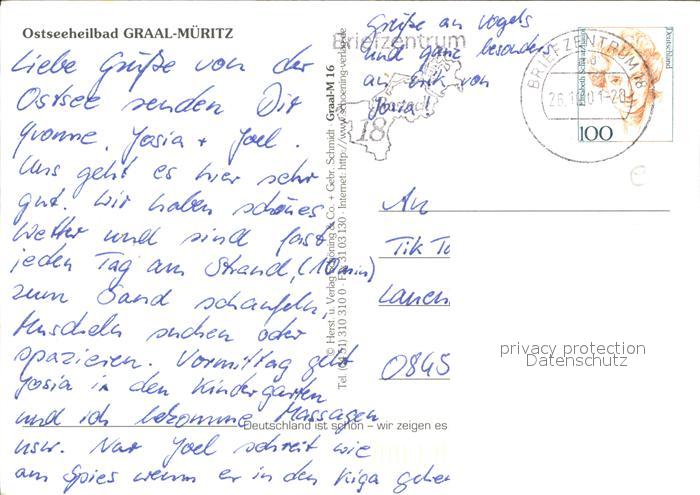 Ostseeheilbad GRAAL-MÜRITZ
Liebe Grüße von der
Ostsee senden Dir
Yvonne, Josia + Joel.
Uns geht es hier sehr
gut. Wir haben schönes
Wetter und sind fast
jeden Tag am Strand, (10 min)
zum Sand schaufeln,
Muscheln suchen oder
spazieren. Vormittag geht
Josia in den Kindergarten
und ich bekomme Massagen
usw. Nur Joel schreit wie
am Spies wenn er in den Kiga gehen
Grüße an Vogels
und ganz besonders
an von
Josia!
Briefzentrum
18
© Herst. u. Verlag Schöning & Co. + Gebr. Schmidt Graal-M 16
Tel. (04 51) 310 310 0 · Fax 31 03 130 · Internet: http://www.schoening-verlag.de
Deutschland ist schön – wir zeigen es
BRIEFZENTRUM 18
26.10.01-20
Elisabeth Schwarzhaupt
Deutschland
100
An
Tik Ta
Lauen
0845
privacy protection
Datenschutz